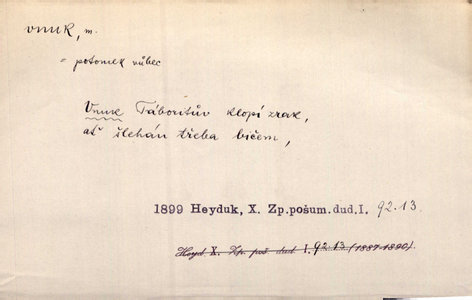 vnuk, m.
= potomek vůbec
Vnuk Táboritův klopí zrak,
ať šlehán třeba bičem,
1899 Heyduk, X. Zp.pošum.dud.I. 92.13
Heyd X. Zp. poš dud I. 92.13 (1887-1890)